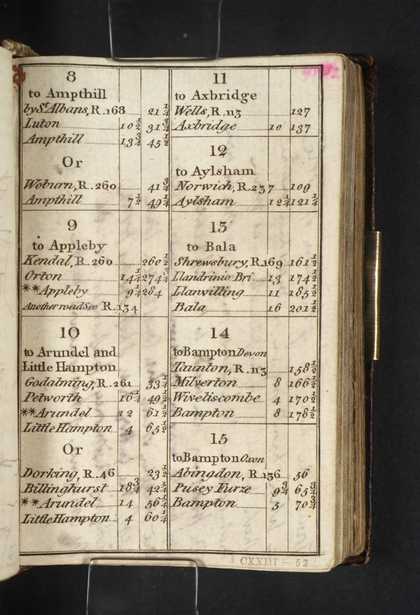 8
to Ampthill
by St. Albans, R. 168 21 1/4
Luton 10 1/2 31 3/4
Ampthill 13 3/4 45 1/2
Or
Woburn, R. 260 41 3/4
Ampthill 7 1/2 49 1/4
9
to Appleby
Kendal, R. 260 260 1/2
Orton 14 1/4 274 3/4
**Appleby 9 1/4 284
Another road See R. 134
10
to Arundel and
Little Hampton
Godalming, R. 261 33 1/4
Petworth 16 1/4 49 1/2
**Arundel 12 61 1/2
Little Hampton 4 65 1/2
Or
Dorking, R. 46 23 1/2
Billinghurst 18 3/4 42 1/4
**Arundel 14 56 1/4
Little Hampton 4 60 1/4
11
to Axbridge
Wells, R. 113 127
Axbridge 10 137
12
to Aylsham
Norwich, R. 237 109
Aylsham 12 1/4 121 1/4
13
to Bala
Shrewsbury, R. 169 161 1/2
Llandrinio Bri. 13 174 1/2
Llanvilling 11 185 1/2
Bala 16 201 1/2
14
to Bampton Devon
Taunton, R. 113 158 1/2
Milverton 8 166 1/2
Wiveliscombe 4 170 1/2
Bampton 8 178 1/2
15
to Bampton Oxon
Abingdon, R. 136 56
Pusey Furze 9 3/4 65 3/4
Bampton 5 70 3/4
CXXIII - 52